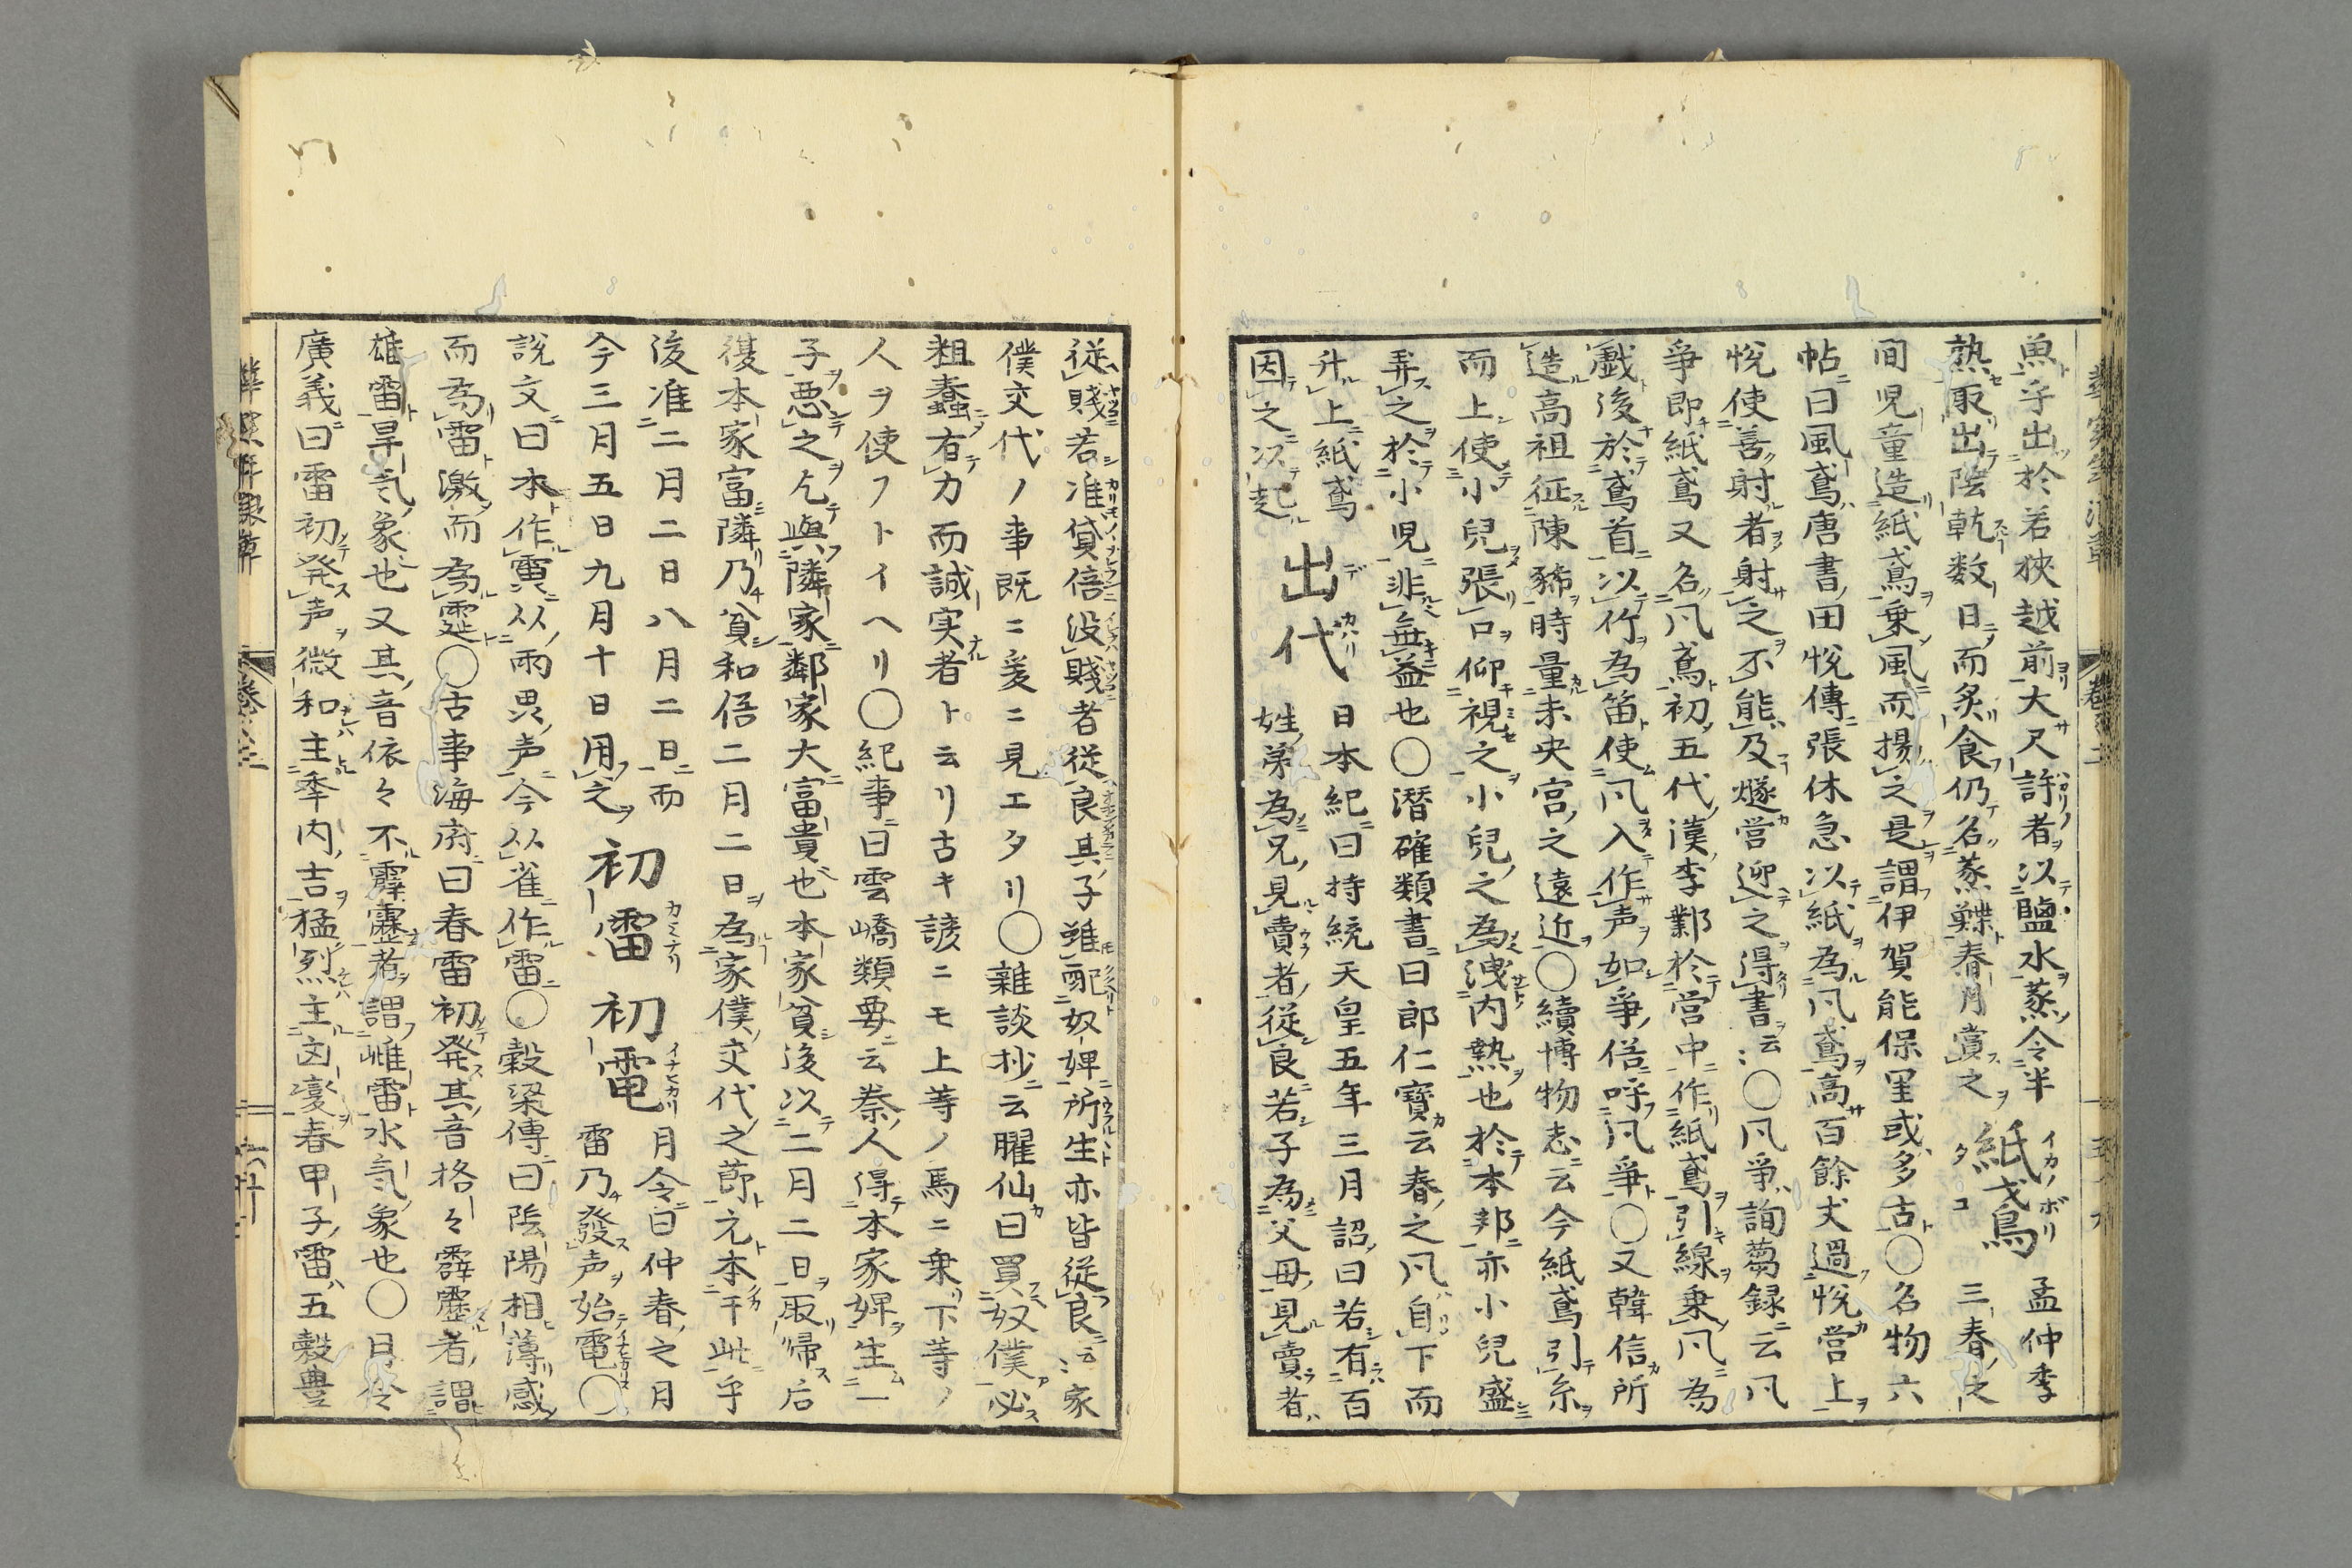 魚乎出於若狹越前大尺許者以鹽水蒸令半
熟取出陰乾数日而炙食仍名蒸鰈春月賞之
紙鳶
イカノボリ
タコ
孟仲季
三春之
間児童造紙鳶乗風而揚之是謂伊賀能保里或多古〇名物六
帖曰風鳶唐書田悅傳張伾急以紙為風鳶高百餘丈過悅営上
悅使善射者射之不能及燧営迎之得書云〻〇風箏詢蒭録云風
箏即紙鳶又名風鳶初五代漢李鄴於営中作紙鳶引線乗風為
戯後於鳶首以竹為笛使風入作声如箏俗呼風箏〇又韓信所
造高祖征陳豨時量未央宮之遠近〇續博物志云今紙鳶引糸
而上使小兒張口仰視之小兒之為洩内熱也於本邦亦小兒盛
弄之於小児非無益也〇潛確類書曰郎仁寶云春之風自下而
升上紙鳶
因之以起
出代
デカハリ
日本紀曰持統天皇五年三月詔曰若有百
姓弟為兄見賣者從良若子為父母見賣者
從賤若准貸倍没賤者従良其子雖配奴婢所生亦皆従良云〻家
僕交代ノ事既ニ爰ニ見エタリ〇雜談抄ニ云臞仙曰買奴僕必
粗蠢有力而誠実者ト云リ古キ諺ニモ上等ノ馬ニ乗下等ノ
人ヲ使フトイヘリ〇紀事曰雲嶠類要云泰人得本家婢生一
子悪之乞與隣家鄰家大富貴也本家貧後以二月二日取帰后
復本家富隣乃貧和俗二月二日為家僕交代之節元本于此乎
後准二月二日八月二日而
今三月五日九月十日用之
初雷
カミナリ
初電
イナヒカリ
月令曰仲春之月
雷乃發声始電〇
說文曰本作靁从雨畾声今从雀作雷〇穀梁傳曰陰陽相薄感
而為雷激而為霆〇古事海府曰春雷初発其音格々霹靂者謂
雄雷旱気象也又其音依々不霹靂者謂雌雷水気象也〇月令
廣義曰雷初発声微和主季内吉猛烈主凶災春甲子雷五穀豊